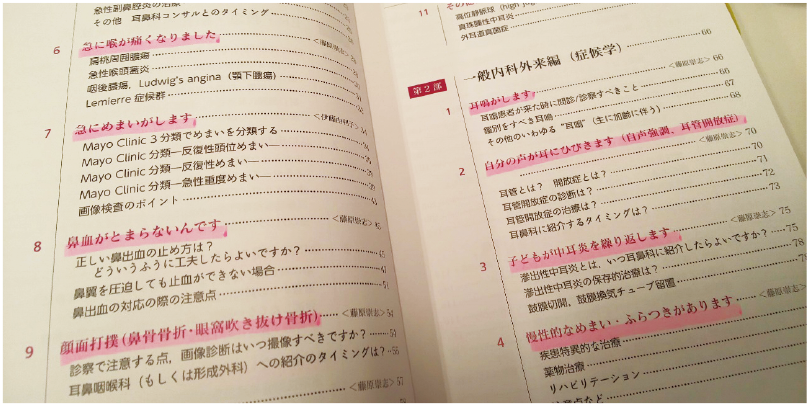 急性副鼻腔炎の治療
その他 耳鼻科コンサルとのタイミング
6 急に喉が痛くなりました 〈藤原崇志〉
扁桃周囲膿瘍
急性喉頭蓋炎
咽後膿瘍，Ludwig's angina（顎下膿瘍）
Lemierre 症候群
7 急にめまいがします
Mayo Clinic 3分類でめまいを分類する
Mayo Clinic 分類—反復性頭位めまい—
Mayo Clinic 分類—反復性めまい—
Mayo Clinic 分類—急性重度めまい—
画像検査のポイント
8 鼻血がとまらないんです 〈藤原崇志〉
正しい鼻出血の止め方は？
どういうふうに工夫したらよいですか？
鼻翼を圧迫しても止血ができない場合
鼻出血の対応の際の注意点
9 顔面打撲（鼻骨骨折・眼窩吹き抜け骨折） 〈藤原崇志〉
診察で注意する点，画像診断はいつ撮像すべきですか？
耳鼻咽喉科（もしくは形成外科）への紹介のタイミングは？
〈藤原崇志〉
11
高位静脈球
真珠腫性中耳炎
外耳道真菌症
第2部 一般内科外来編（症候学） 66
1 耳鳴がします 〈藤原崇志〉 66
耳鳴患者が来た時に問診/診察すべきこと 66
鑑別をすべき耳鳴 67
その他のいわゆる“耳鳴”（主に加齢に伴う） 68
2 自分の声が耳にひびきます（自声強調，耳管開放症） 〈藤原崇志〉 70
耳管とは？ 開放症とは？ 70
耳管開放症の診断は？ 71
耳管開放症の治療は？ 72
耳鼻科に紹介するタイミングは？ 73
3 子どもが中耳炎を繰り返します 〈藤原崇志〉 75
滲出性中耳炎とは，いつ耳鼻科に紹介したらよいですか？ 75
滲出性中耳炎の保存的治療は？ 78
鼓膜切開，鼓膜換気チューブ留置
4 慢性的なめまい・ふらつきがあります
疾患特異的な治療
薬物治療
リハビリテーション